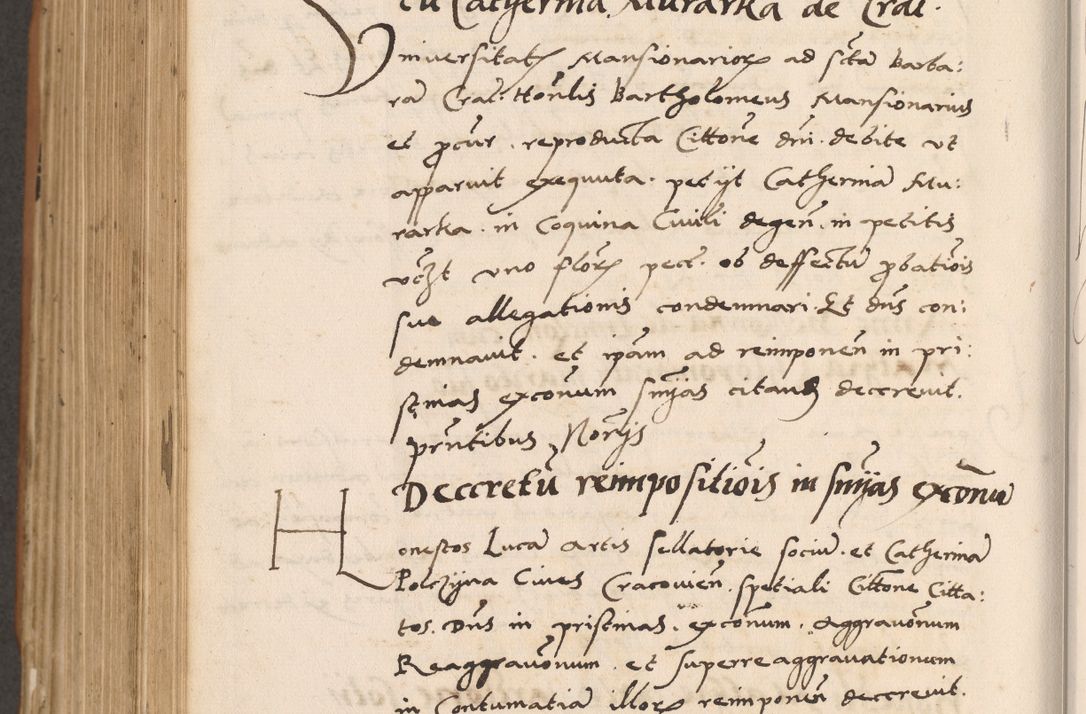 cu Catherina Murarka de Crac.
Vniversitatis Mansionariorum ad sctam Barba:
ram Crac: Honlis Bartholomeus Mansionarius
et pcur. reproducta Cittone dni. debite ut
apparuit exequuta. petijt Catherinam Mu:
rarka. in Coquina Civili degen. in petitis
uczt uno flore pecc. ob deffectum pbationis
sue allegationis condemnari. Et dns con:
demnavit. et ipam ad reimponen in pri:
stinas exconum snijas citand decrevit.
prntibus Norijs
Decretum reimpositiois in snijas exconum
Honestos Lucam artis sellatorie socium. et Catherinam
Polczyna Cives Cracovien. spetiali Cittone Citta:
tos. Dns in pristinas. exconum. Aggravonum
Reaggravonum. et superreaggravationum
in Contumatiam illorum reimponen decrevit.